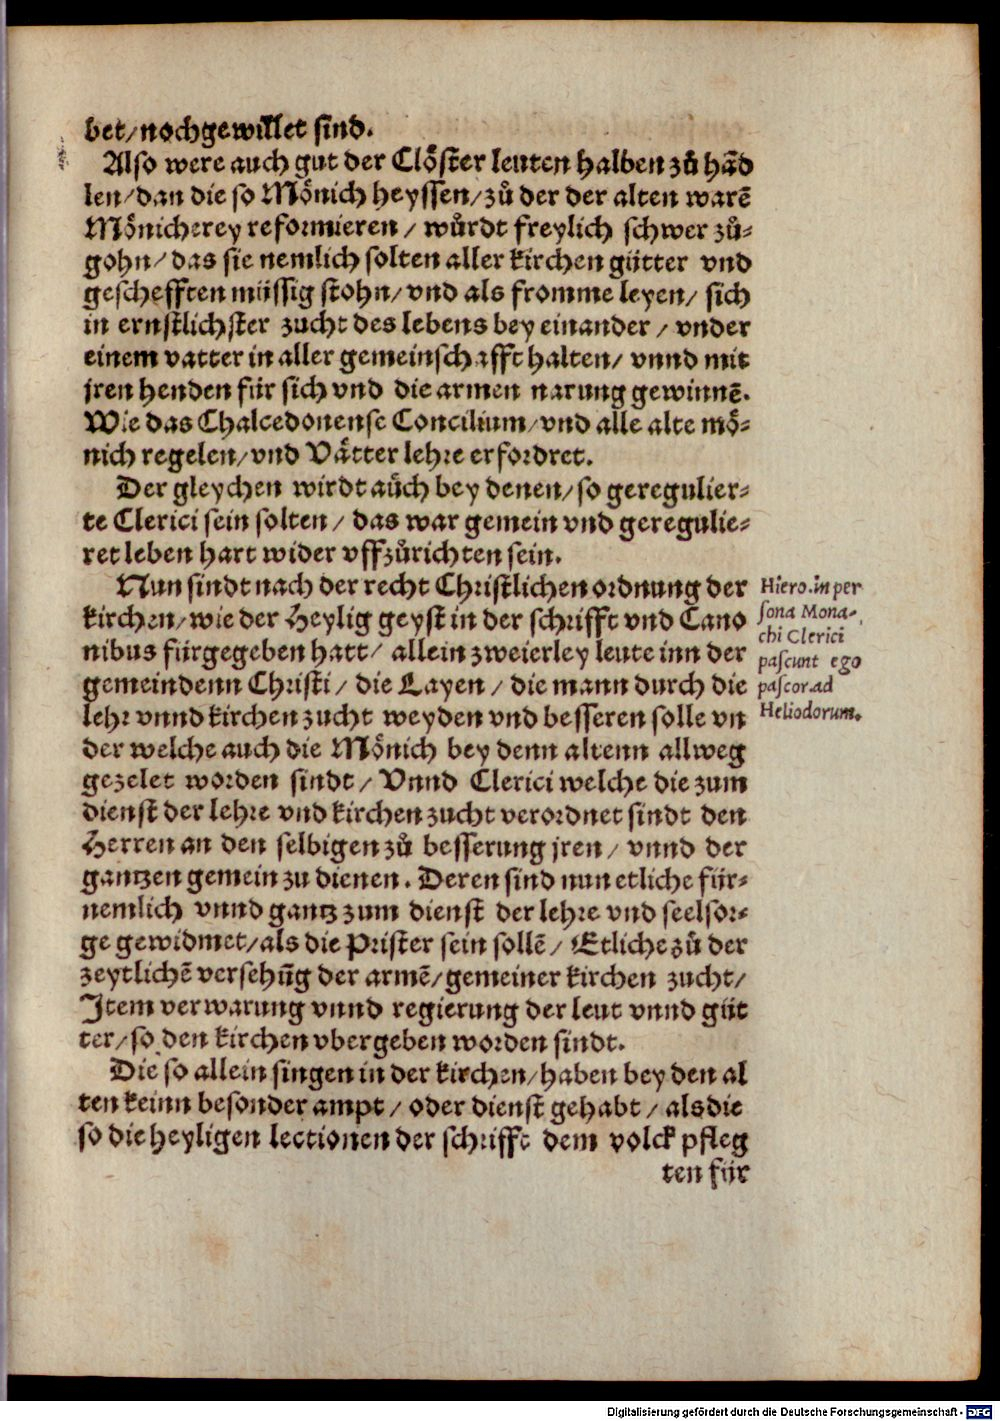 bet/nochgewillet sind.
Also were auch gut der Clöster leuten halben zů hãd
len/dan die so Mönich heyssen/zů der der alten warẽ
Mönicherey reformieren/ wůrdt freylich schwer zů-
gohn/das sie nemlich solten aller kirchen gütter vnd
geschefften müssig stohn/vnd als fromme leyen/ sich
in ernstlichster zucht des lebens bey einander/ vnder
einem vatter in aller gemeinschafft halten/ vnnd mit
jren henden für sich vnd die armen narung gewinnẽ.
Wie das Chalcedonense Concilium/vnd alle alte mö-
nich regelen/vnd Vätter lehre erfordret.
Der gleychen wirdt aůch bey denen/so geregulier-
te Clerici sein solten/ das war gemein vnd geregulie-
ret leben hart wider vffzůrichten sein.
Nun sindt nach der recht Christlichen ordnung der
kirchen/wie der Heylig geyst in der schrifft vnd Cano
nibus fürgegeben hatt/ allein zweierley leute inn der
gemeindenn Christi/ die Layen/ die mann durch die
lehr vnnd kirchen zucht weyden vnd besseren solle vn
der welche auch die Mönich bey denn altenn allweg
gezelet worden sindt/ Vnnd Clerici welche die zum
dienst der lehre vnd kirchen zucht verordnet sindt den
Herren an den selbigen zů besserung jren/ vnnd der
gantzen gemein zu dienen. Deren sind nun etliche für-
nemlich vnnd gantz zum dienst der lehre vnd seelsor-
ge gewidmet/als die Prister sein sollẽ/ Etliche zů der
zeytlichẽ versehũg der armẽ/gemeiner kirchen zucht/
Item verwarung vnnd regierung der leut vnnd güt
ter/so den kirchen vbergeben worden sindt.
Die so allein singen in der kirchen/haben bey den al
ten keinn besonder ampt/ oder dienst gehabt/ als die
so die heyligen lectionen der schrifft dem volck pfleg
ten für
Hiero. in per
sona Mona-
chi Clerici
pascunt ego
pascor. ad
Heliodorum.
Digitalisierung gefördert durch die Deutsche Forschungsgemeinschaft - DFG